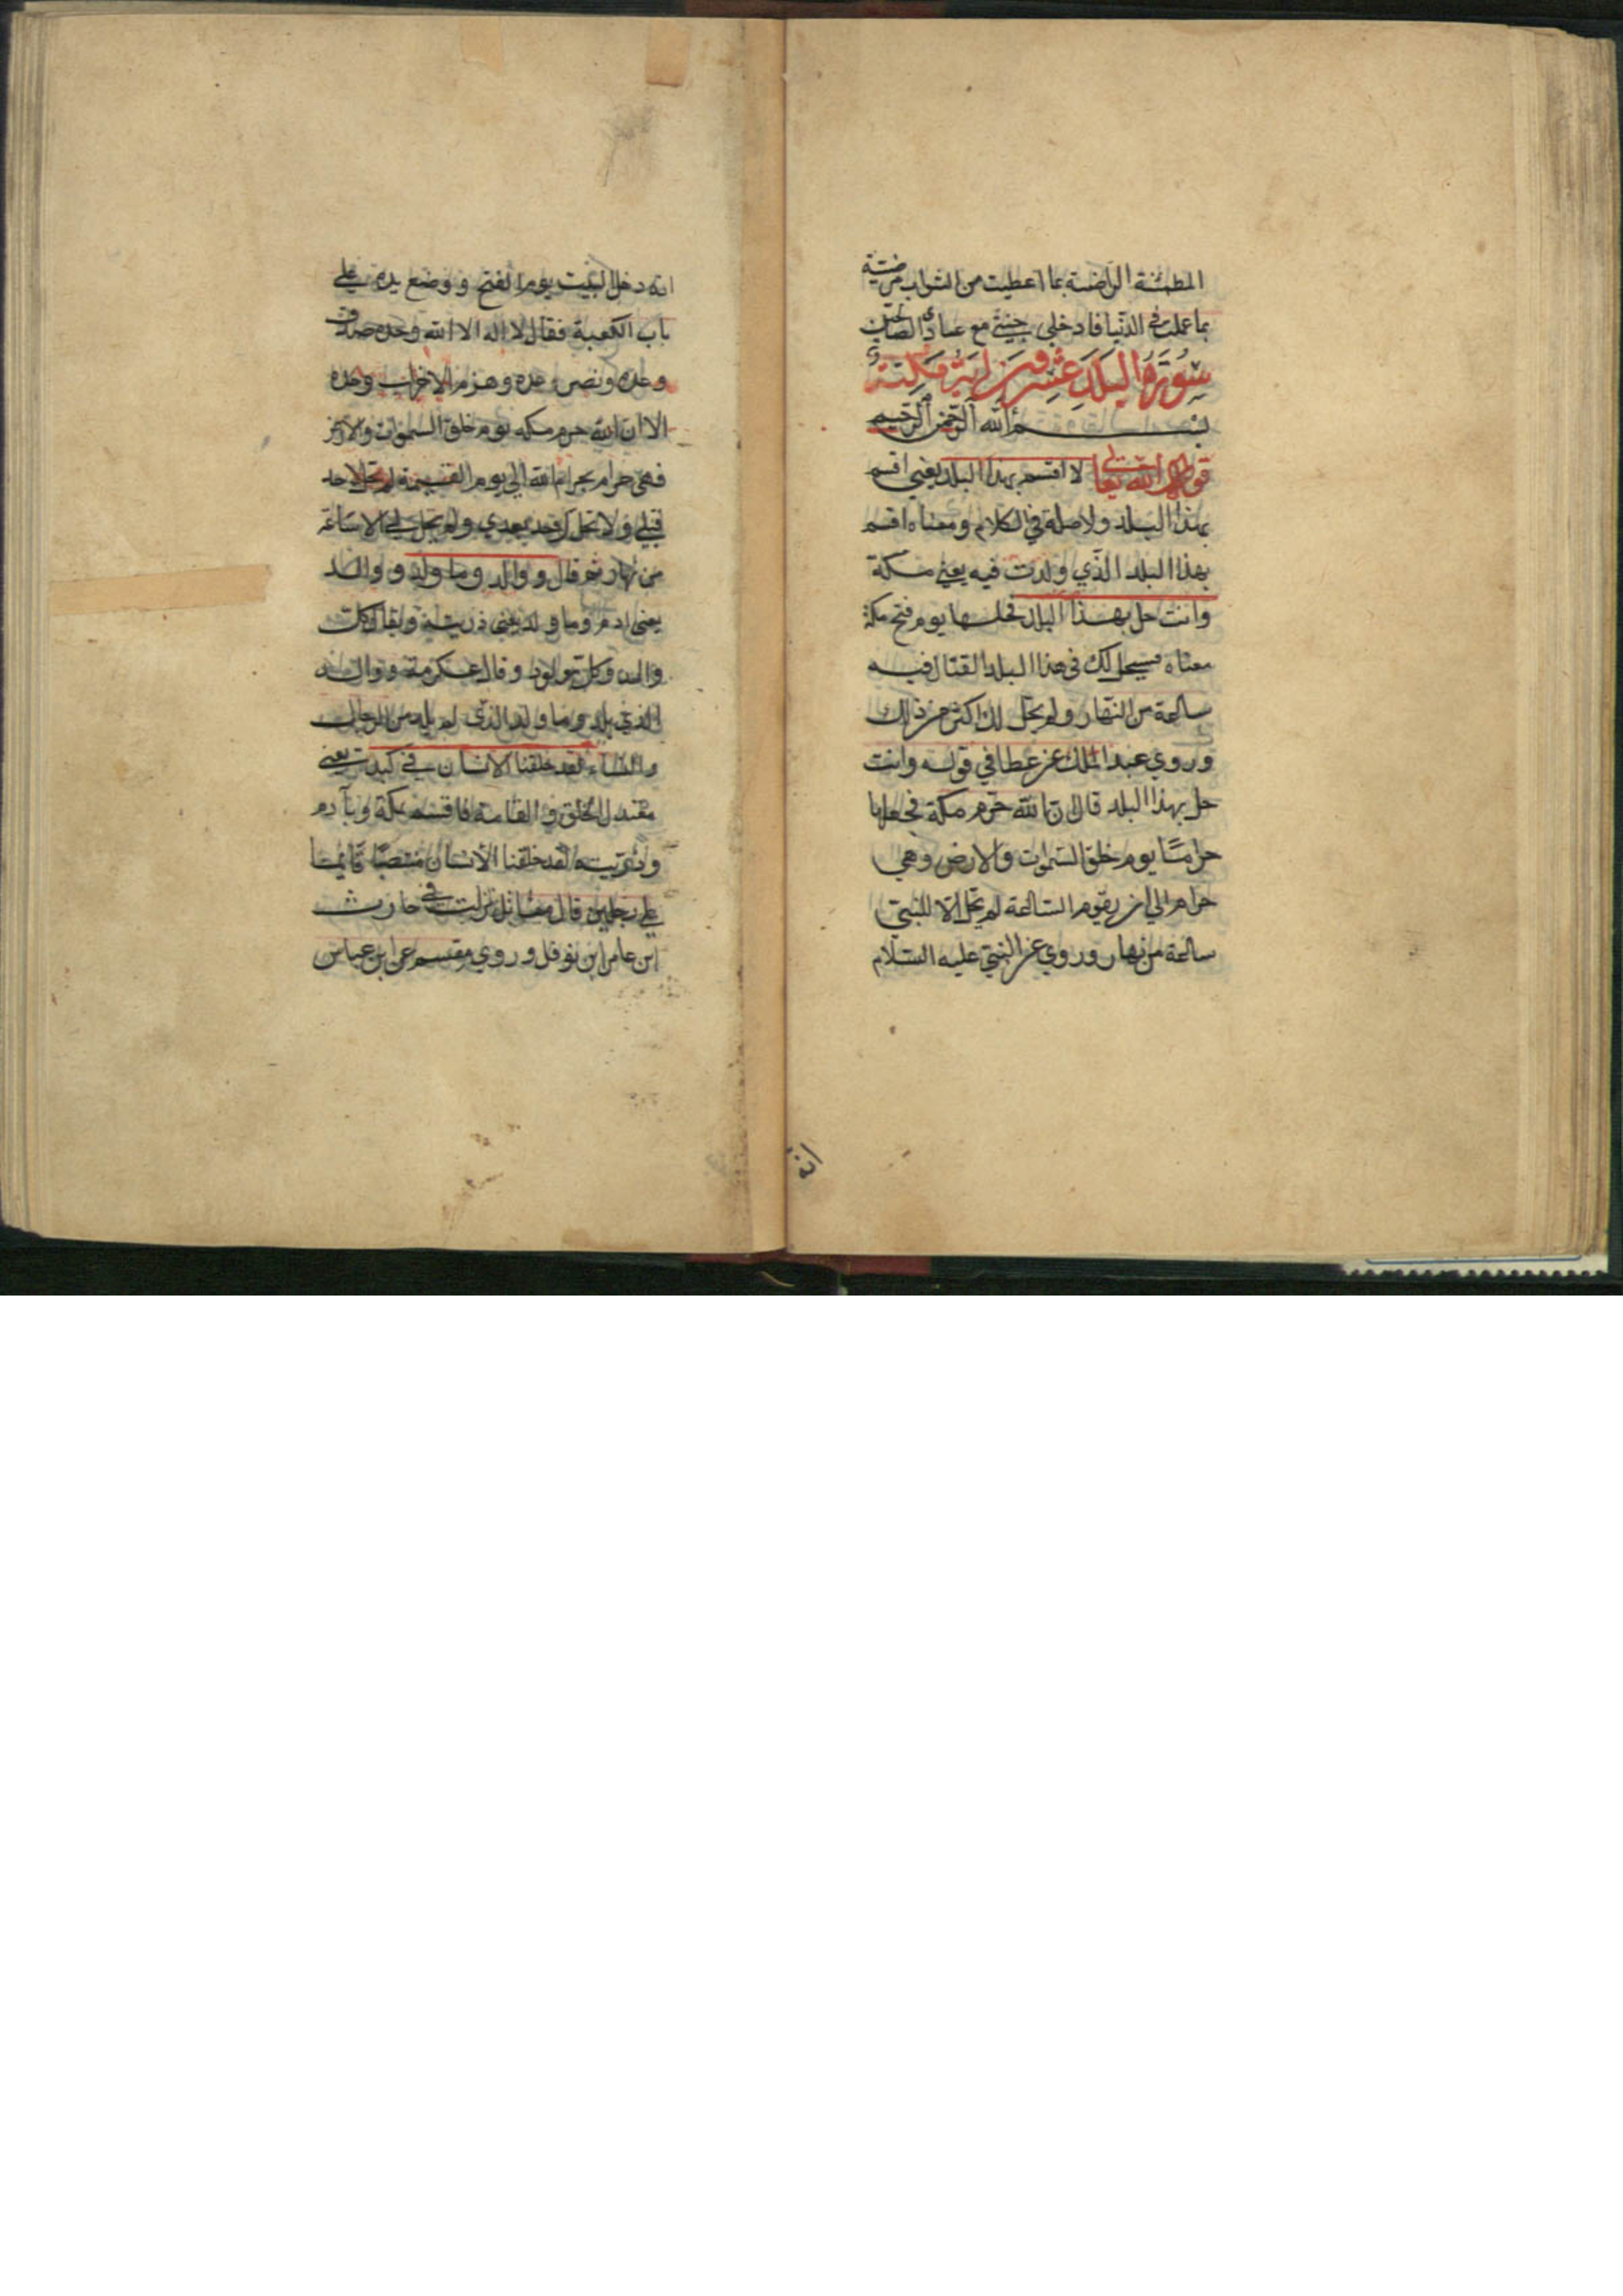 المطمئنة الراضية بما اعطيت من الثواب مرضيّة
بما عملت في الدّنيا فادخلي جنتي مع عبادي الصالحين
سُورَةُ البَلَدِ عِشْرون اية مكيّة
بسم الله الرحمن الرحيم
قول الله تعالى لا اقسم بهذا البلد يعني اقسم
بهذا البلد ولا صلة في الكلام ومعناه اقسم
بهذا البلد الّذي ولدت فيه يعني مكة
وانت حل بهذا البلد فحلها يوم فتح مكة
معناه سيحل لك في هذا البلد القتال فيه
ساعة من النهار ولم يحل لك اكثر من ذلك
وروي عبد الملك عن عطا في قوله وانت
حل بهذا البلد قال ان الله حرّم مكة فجعلها
حراما يوم خلق السموات والارض وهي
حرام الي ان يقوم الساعة لم تحل الا للنبيّ
ساعة من نهار وروي عن النبيّ عليه السّلام
انه دخل البيت يوم الفتح ووضع يده علي
باب الكعبة فقال لا اله الا الله وحده صدق
وعده ونصر عبده وهزم الاحزاب وحده
الا ان الله حرم مكه يوم خلق السموات والارض
فهي حرام بحرام الله الي يوم القيمة لم تحل لاحد
قبلي ولا تحل لاحد بعدي ولم يحل لي الا ساعة
من نهار ثم قال ووالد وما ولد ووالد
يعني ادم وما ولد يعني ذريته ويقال كل
والد وكل مولود وقال عكرمة ووالد
الذي يلد وما ولد الذي لم يلد من الرجال
والنساء لقد خلقنا الانسان في كبد يعني
معتدل الخلق والقامة فاقسم بمكة وبآدم
وذريته لقد خلقنا الانسان منتصبًا قايما
علي رجلين قال مقاتل نزلت في حارث
ابن عامر ابن نوفل وروي مقسم عن ابن عباس